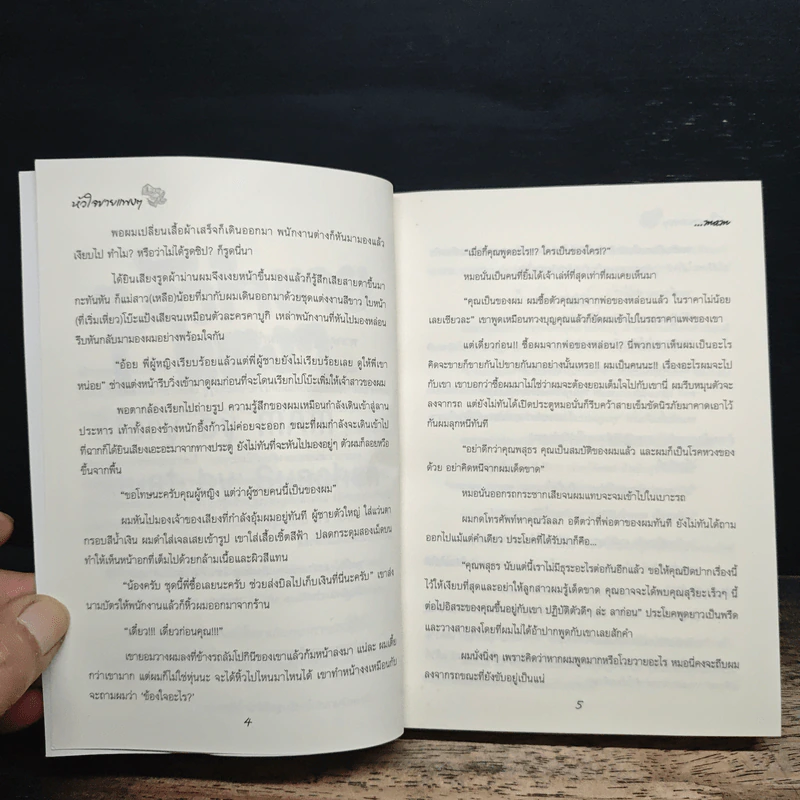 หัวใจขายแพงๆ
พอผมเปลี่ยนเสื้อผ้าเสร็จก็เดินออกมา พนักงานต่างก็หันมามองแล้ว
เงียบไป ทำไม? หรือว่าไม่ได้รูดซิป? ก็รูดนี่นา
ได้ยินเสียงรูดผ้าม่านผมจึงเงยหน้าขึ้นมองแล้วก็รู้สึกเสียสายตาขึ้นมา
กะทันหัน ก็แม่สาว(เหลือ)น้อยที่มากับผมเดินออกมาด้วยชุดแต่งงานสีขาว ใบหน้า
(ที่เริ่มเหี่ยว)โบ๊ะแป้งเสียจนเหมือนตัวละครคาบูกิ เหล่าพนักงานที่หันไปมองหล่อน
รีบหันกลับมามองผมอย่างพร้อมใจกัน
“อ้อย พี่ผู้หญิงเรียบร้อยแล้วแต่พี่ผู้ชายยังไม่เรียบร้อยเลย ดูให้พี่เขา
หน่อย” ช่างแต่งหน้ารีบวิ่งเข้ามาดูผมก่อนที่จะโดนเรียกไปโบ๊ะเพิ่มให้เจ้าสาวของผม
พอตากล้องเรียกไปถ่ายรูป ความรู้สึกของผมเหมือนกำลังเดินเข้าสู่ลาน
ประหาร เท้าทั้งสองข้างหนักอึ้งก้าวไม่ค่อยจะออก ขณะที่ผมกำลังจะเดินเข้าไป
ที่ฉากก็ได้ยินเสียงเอะอะมาจากทางประตู ยังไม่ทันที่จะหันไปมองอยู่ๆ ตัวผมก็ลอยหวือ
ขึ้นจากพื้น
“ขอโทษนะครับคุณผู้หญิง แต่ว่าผู้ชายคนนี้เป็นของผม”
ผมหันไปมองเจ้าของเสียงที่กำลังอุ้มผมอยู่ทันที ผู้ชายตัวใหญ่ ใส่แว่นตา
กรอบสีน้ำเงิน ผมดำใส่เจลเสยเข้ารูป เขาใส่เสื้อเชิ้ตสีฟ้า ปลดกระดุมสองเม็ดบน
ทำให้เห็นหน้าอกที่เต็มไปด้วยกล้ามเนื้อและผิวสีแทน
“น้องครับ ชุดนี้พี่ซื้อเลยนะครับ ช่วยส่งบิลไปเก็บเงินที่นี่นะครับ” เขาส่ง
นามบัตรให้พนักงานแล้วก็หิ้วผมออกมาจากร้าน
“เดี๋ยว!!! เดี๋ยวก่อนคุณ!!!”
เขายอมวางผมลงที่ข้างรถลัมโบกินีของเขาแล้วก้มหน้าลงมา แน่ละ ผมเตี้ย
กว่าเขามาก แต่ผมก็ไม่ใช่หุ่นนะ จะได้หิ้วไปไหนมาไหนได้ เขาทำหน้างงเหมือนกับ
จะถามผมว่า ‘ข้องใจอะไร?’
4
“เมื่อกี้คุณพูดอะไร!!? ใครเป็นของใคร!?”
หมอนั่นเป็นคนที่ยิ้มได้เจ้าเล่ห์ที่สุดเท่าที่ผมเคยเห็นมา
“คุณเป็นของผม ผมซื้อตัวคุณมาจากพ่อของหล่อนแล้ว ในราคาไม่น้อย
เลยเชียวละ” เขาพูดเหมือนทวงบุญคุณแล้วก็ยัดผมเข้าไปในรถราคาแพงของเขา
แต่เดี๋ยวก่อน!! ซื้อผมจากพ่อของหล่อน!? นี่พวกเขาเห็นผมเป็นอะไร
คิดจะขายก็ขายกันไปขายกันมาอย่างนั้นเหรอ!! ผมเป็นคนนะ!! เรื่องอะไรผมจะไป
กับเขา เขาบอกว่าซื้อผมมาไม่ใช่ว่าผมจะต้องยอมเต็มใจไปกับเขานี่ ผมรีบหมุนตัวจะ
ลงจากรถ แต่ยังไม่ทันได้เปิดประตูหมอนั่นก็รีบคว้าสายเข็มขัดนิรภัยมาคาดเอาไว้
กันผมลุกหนีทันที
“อย่าดีกว่าคุณพสุธร คุณเป็นสมบัติของผมแล้ว และผมก็เป็นโรคหวงของ
ด้วย อย่าคิดหนีจากผมเด็ดขาด”
หมอนั่นออกรถกระชากเสียจนผมแทบจะจมเข้าไปในเบาะรถ
ผมกดโทรศัพท์หาคุณวัลลภ อดีตว่าที่พ่อตาของผมทันที ยังไม่ทันได้ถาม
ออกไปแม้แต่คำเดียว ประโยคที่ได้รับมาก็คือ...
“คุณพสุธร นับแต่นี้เราไม่มีธุระอะไรต่อกันอีกแล้ว ขอให้คุณปิดปากเรื่องนี้
ไว้ให้เงียบที่สุดและอย่าให้ลูกสาวผมรู้เด็ดขาด คุณอาจจะได้พบคุณสุริยะเร็วๆ นี้
ต่อไปอิสระของคุณขึ้นอยู่กับเขา ปฏิบัติตัวดีๆ ล่ะ ลาก่อน” ประโยคพูดยาวเป็นพรืด
และวางสายลงโดยที่ผมไม่ได้อ้าปากพูดกับเขาเลยสักคำ
ผมนั่งนิ่งๆ เพราะคิดว่าหากผมพูดมากหรือโวยวายอะไร หมอนี่คงจะถีบผม
ลงจากรถขณะที่ยังขับอยู่เป็นแน่
5